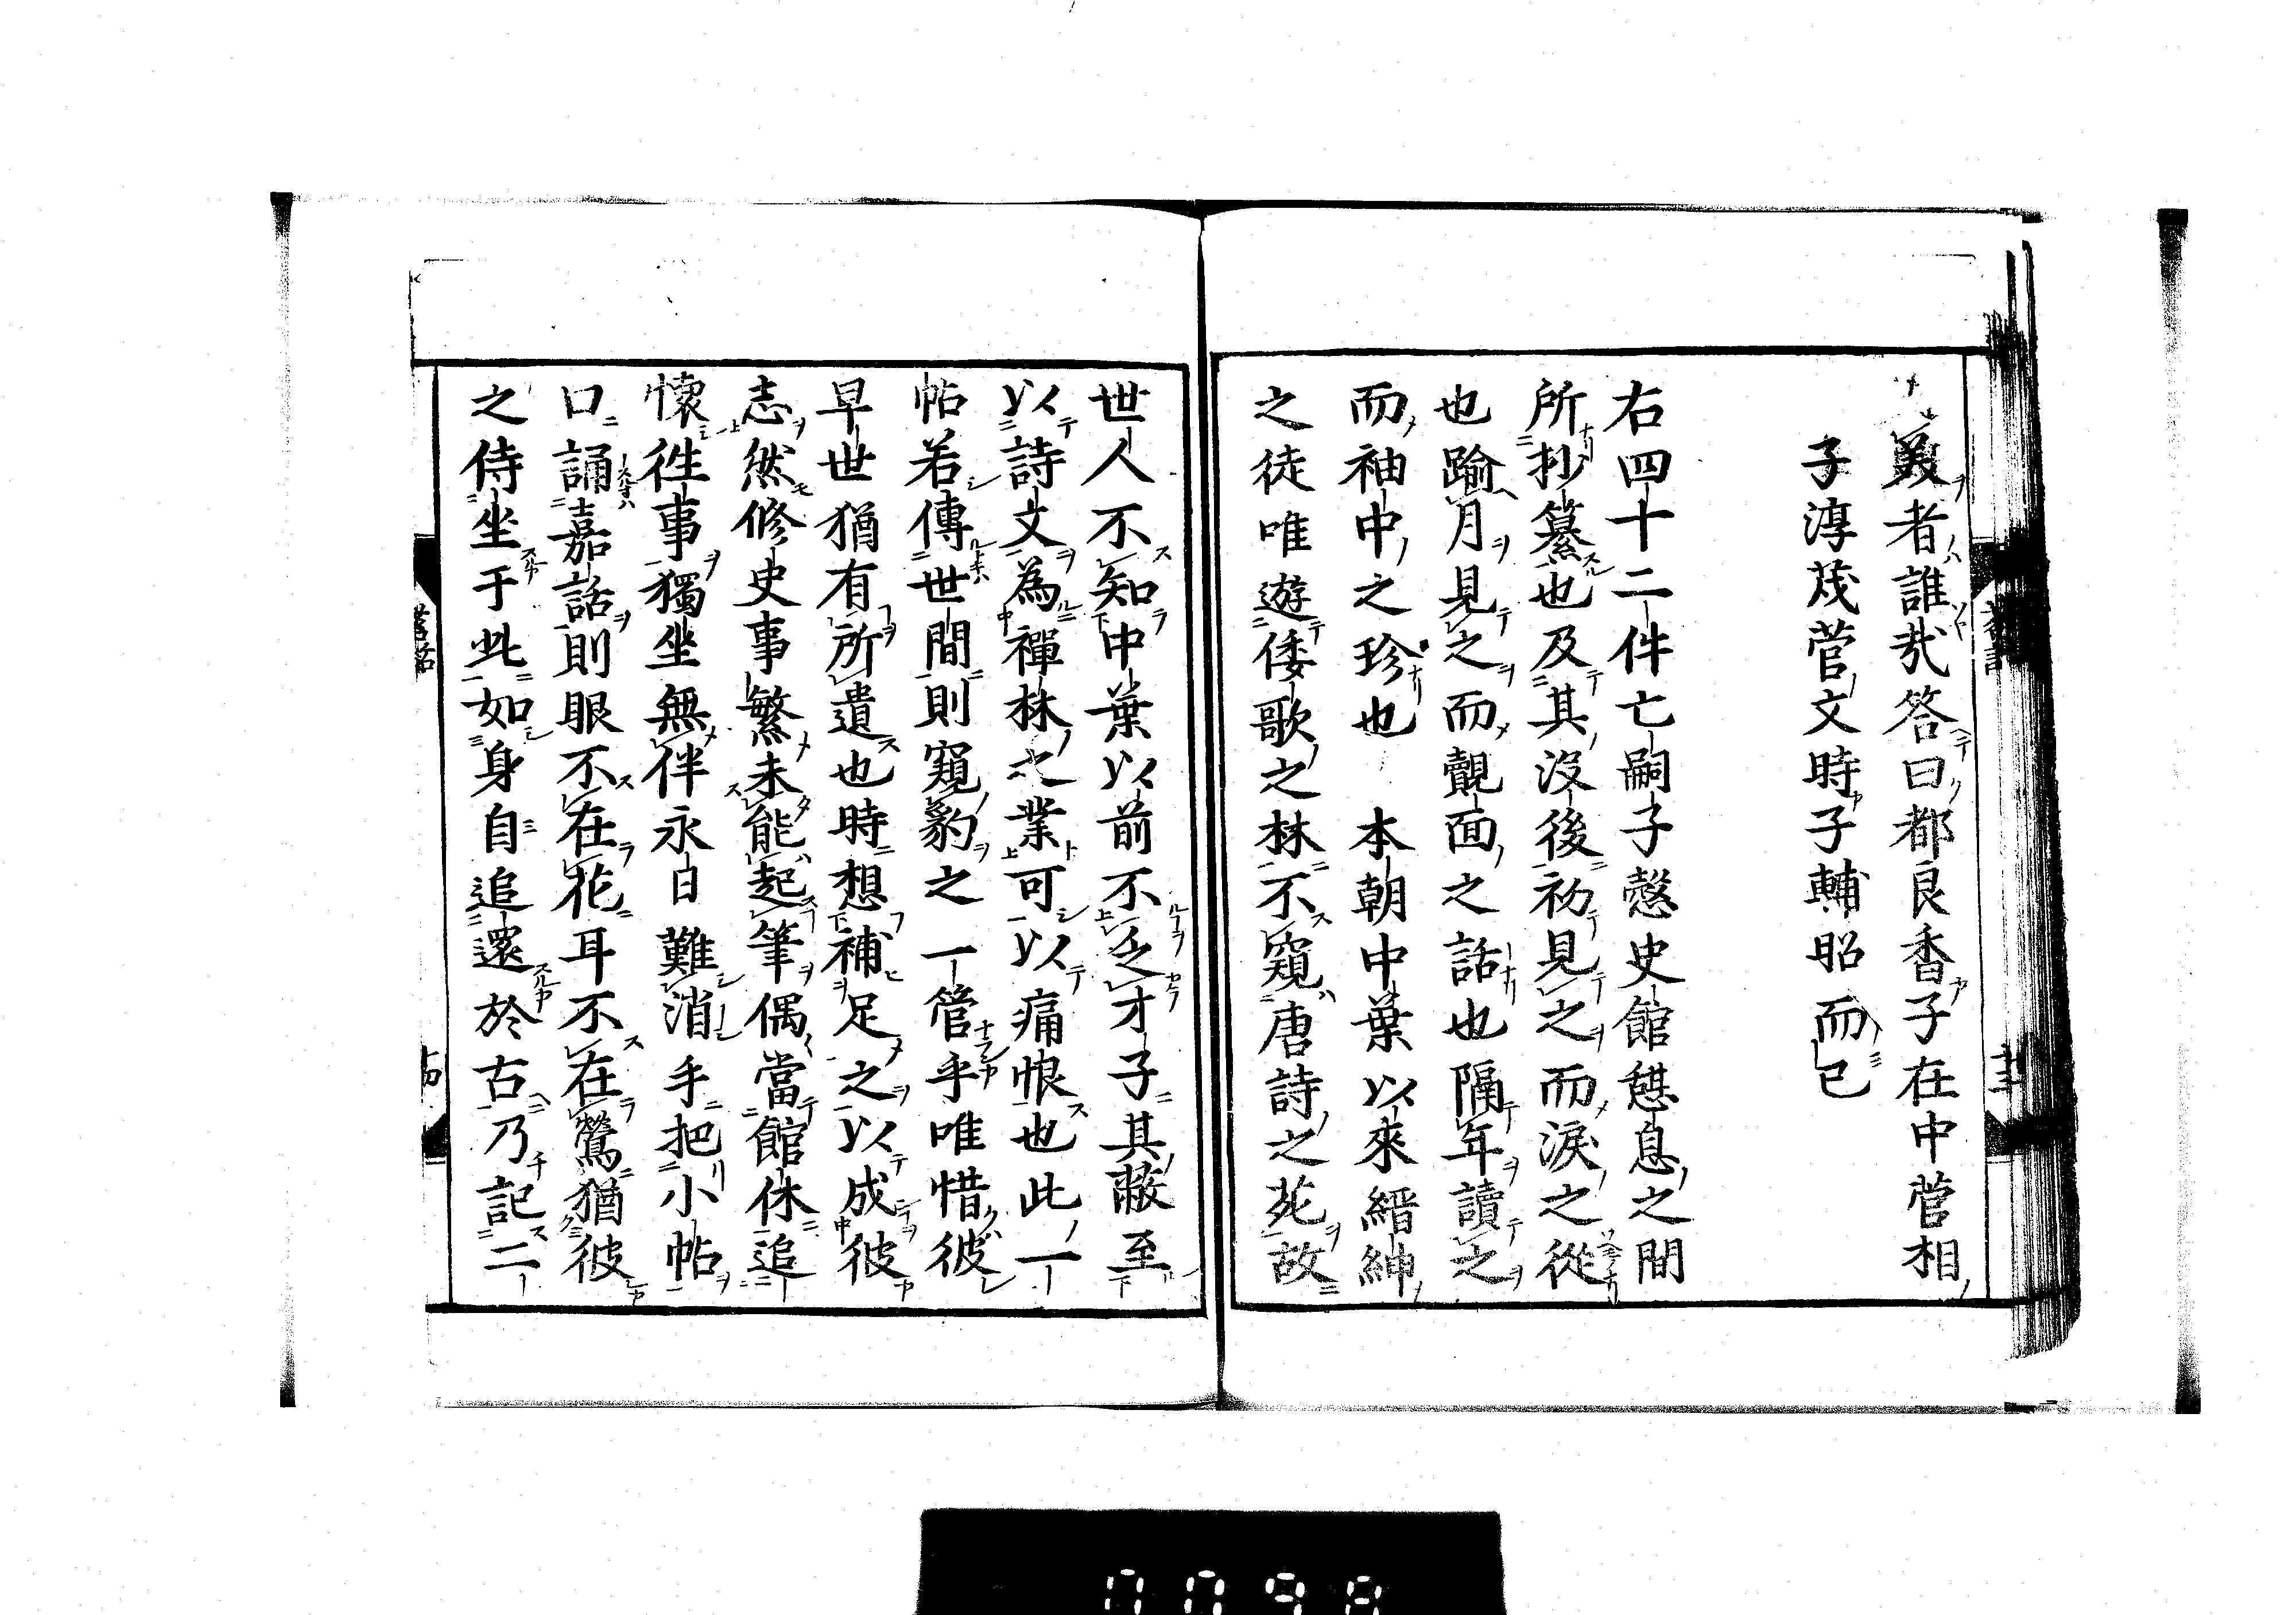 美者誰哉答曰都良香子在中菅相
子淳茂菅文時子輔昭而已
右四十二件亡嗣子愨史館憩息之間
所抄纂也及其沒後初見之而淚之從
也踰月見之而覿面之話也隔年讀之
而袖中之珍也 本朝中葉以來縉紳
之徒唯遊倭歌之林不窺唐詩之苑故
世人不知中葉以前不乏才子其蔽至
以詩文為禪林之業可以痛恨也此一
帖若傳世間則窺豹之一管乎唯惜彼
早世猶有所遺也時想補足之以成彼
志然修史事繁未能起筆偶當館休追
懷徃事獨坐無伴永日難消手把小帖
口誦嘉話則眼不在花耳不在鶯猶彼
之侍坐于此如身自追還於古乃記二